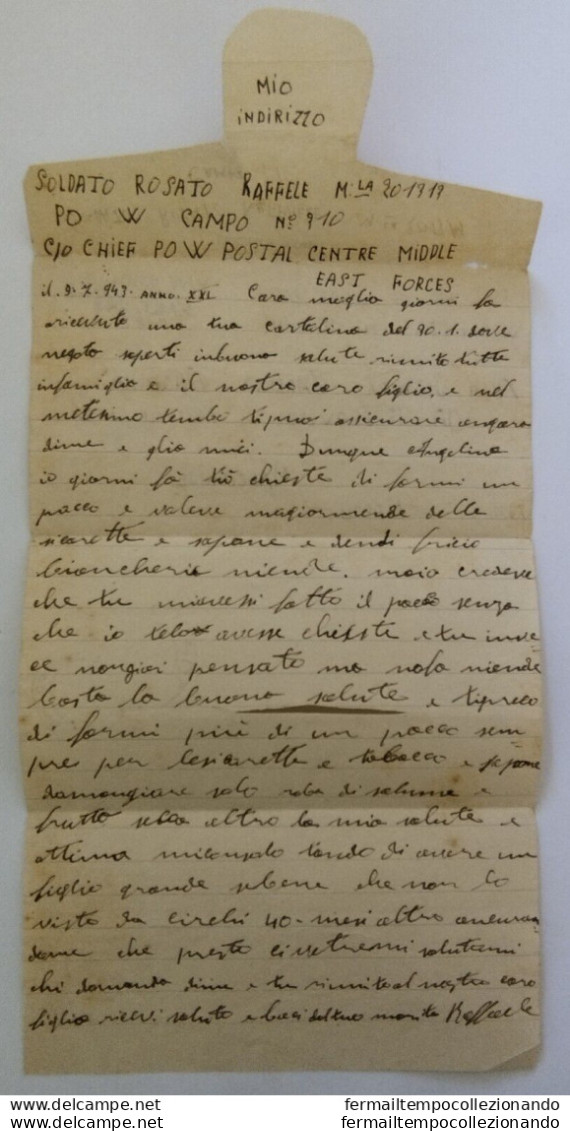 MIO
INDIRIZZO
SOLDATO ROSATO RAFFELE M:LA 201919
PO W CAMPO Nº 310
C/O CHIEF P.O W POSTAL CENTRE MIDDLE
EAST FORCES
il 9-7-943. ANNO. XXI. Cara moglia giorni fa
una tua cartolina del 20.1. dove
inbuona salute riunito tutte
infamiglia e il nostro caro figlio, e nel
metesimo tembo tipuoi assicurare
dime e glia miei. Dunque Angelina
io giorni fà tiò chieste di farmi un
pacco e maciormende delle
sicarette e sapone e dendi fricio
biancheria niende. maio credeva
che tu miavessi fatto il pacco senza
che io telo avesse chieste e tu inve=
ce pensato ma nofa niende
basta la buona salute e tipreco
di farmi più di un pacco sem=
pre per lesicarette e tabacco e sapone
damangiare solo roba di salume e
frutto secca altro la mia salute e
ottima miconsolo tando di avere un
figlio grande sebene che non lo
visto da circhi 40-mesi altro
che presto civetremi salutami
chi domanda dime e tu riunito al nostro caro
figlio ricevi saluto e baci daltuo marito Raffaele
fermailtempocollezionando fermailtempocollezionando